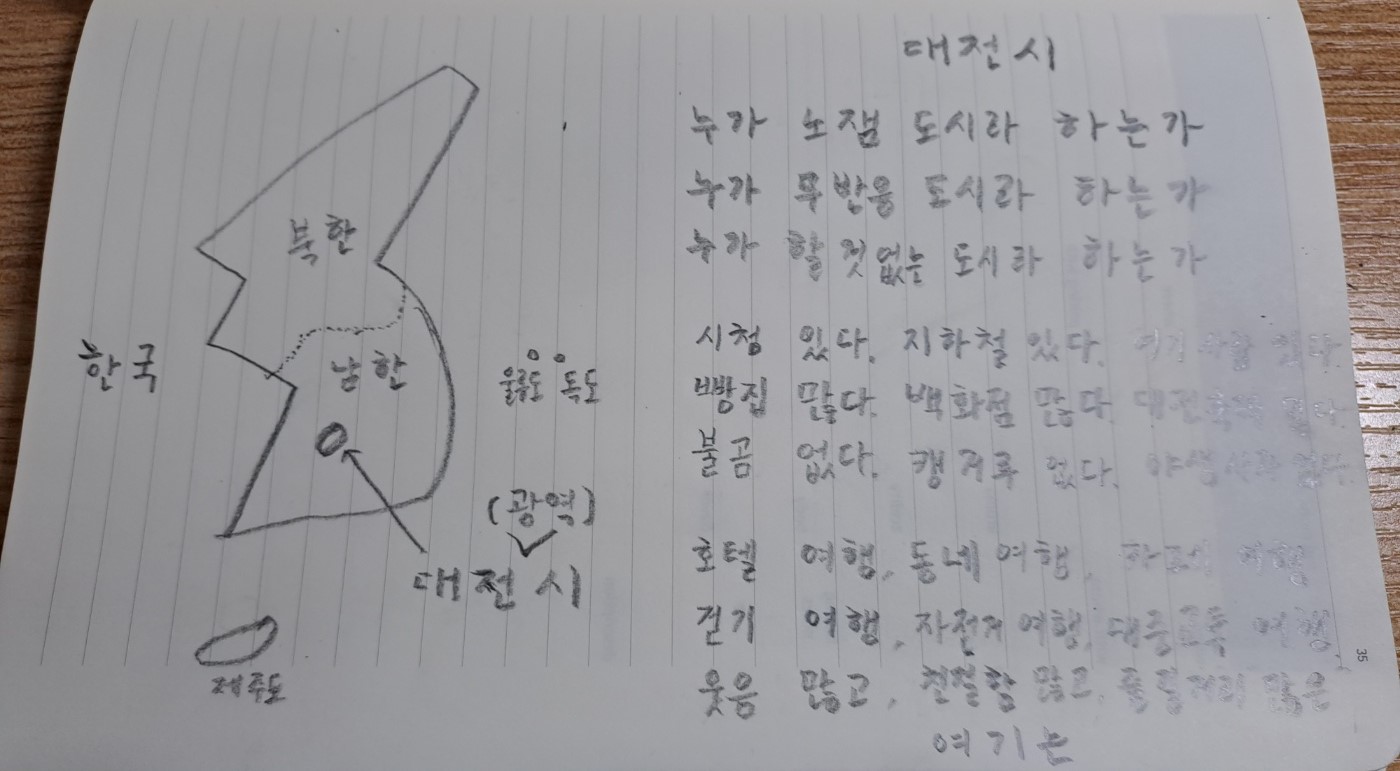 북한
한국
남한
울릉도 독도
(광역)
대전시
제주도
대전시
누가 노잼 도시라 하는가
누가 무반응 도시라 하는가
누가 할 것 없는 도시라 하는가
시청 있다. 지하철 있다. 여기 사람 있다.
빵집 많다. 백화점 많다. 많다.
불곰 없다. 캥거루 없다. 없다.
호텔 여행, 동네 여행, 여행
걷기 여행, 자전거 여행, 대중교통 여행,
웃음 많고, 친절함 많고, 많은
여기는
35